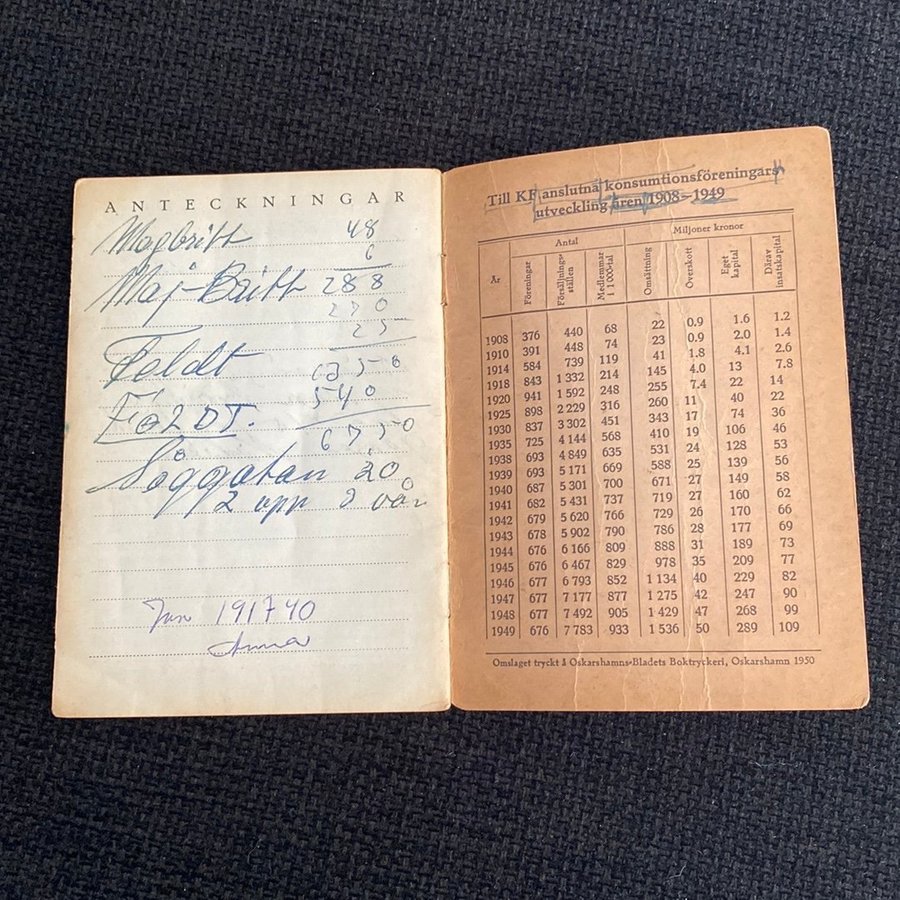 ANTECKNINGAR
Magbritt 48
6
Maj-Britt 288
270
25
Feldt 1350
540
FELDT. 6750
Höggatan 20
2 opp 2 vån
191740
Anna
Till KF anslutna konsumtionsföreningars
utveckling åren 1908—1949
Antal Miljoner kronor
År Föreningar Försäljnings-ställen Medlemmar i 1000-tal Omsättning Överskott Eget kapital Därav insatskapital
1908 376 440 68 22 0.9 1.6 1.2
1910 391 448 74 23 0.9 2.0 1.4
1914 584 739 119 41 1.8 4.1 2.6
1918 843 1 332 214 145 4.0 13 7.8
1920 941 1 592 248 255 7.4 22 14
1925 898 2 229 316 260 11 40 22
1930 837 3 302 451 343 17 74 36
1935 725 4 144 568 410 19 106 46
1938 693 4 849 635 531 24 128 53
1939 693 5 171 669 588 25 139 56
1940 687 5 301 700 671 27 149 58
1941 682 5 431 737 719 27 160 62
1942 679 5 620 766 729 26 170 66
1943 678 5 902 790 786 28 177 69
1944 676 6 166 809 888 31 189 73
1945 676 6 467 829 978 35 209 77
1946 677 6 793 852 1 134 40 229 82
1947 677 7 177 877 1 275 42 247 90
1948 677 7 492 905 1 429 47 268 99
1949 676 7 783 933 1 536 50 289 109
Omslaget tryckt å Oskarshamns-Bladets Boktryckeri, Oskarshamn 1950